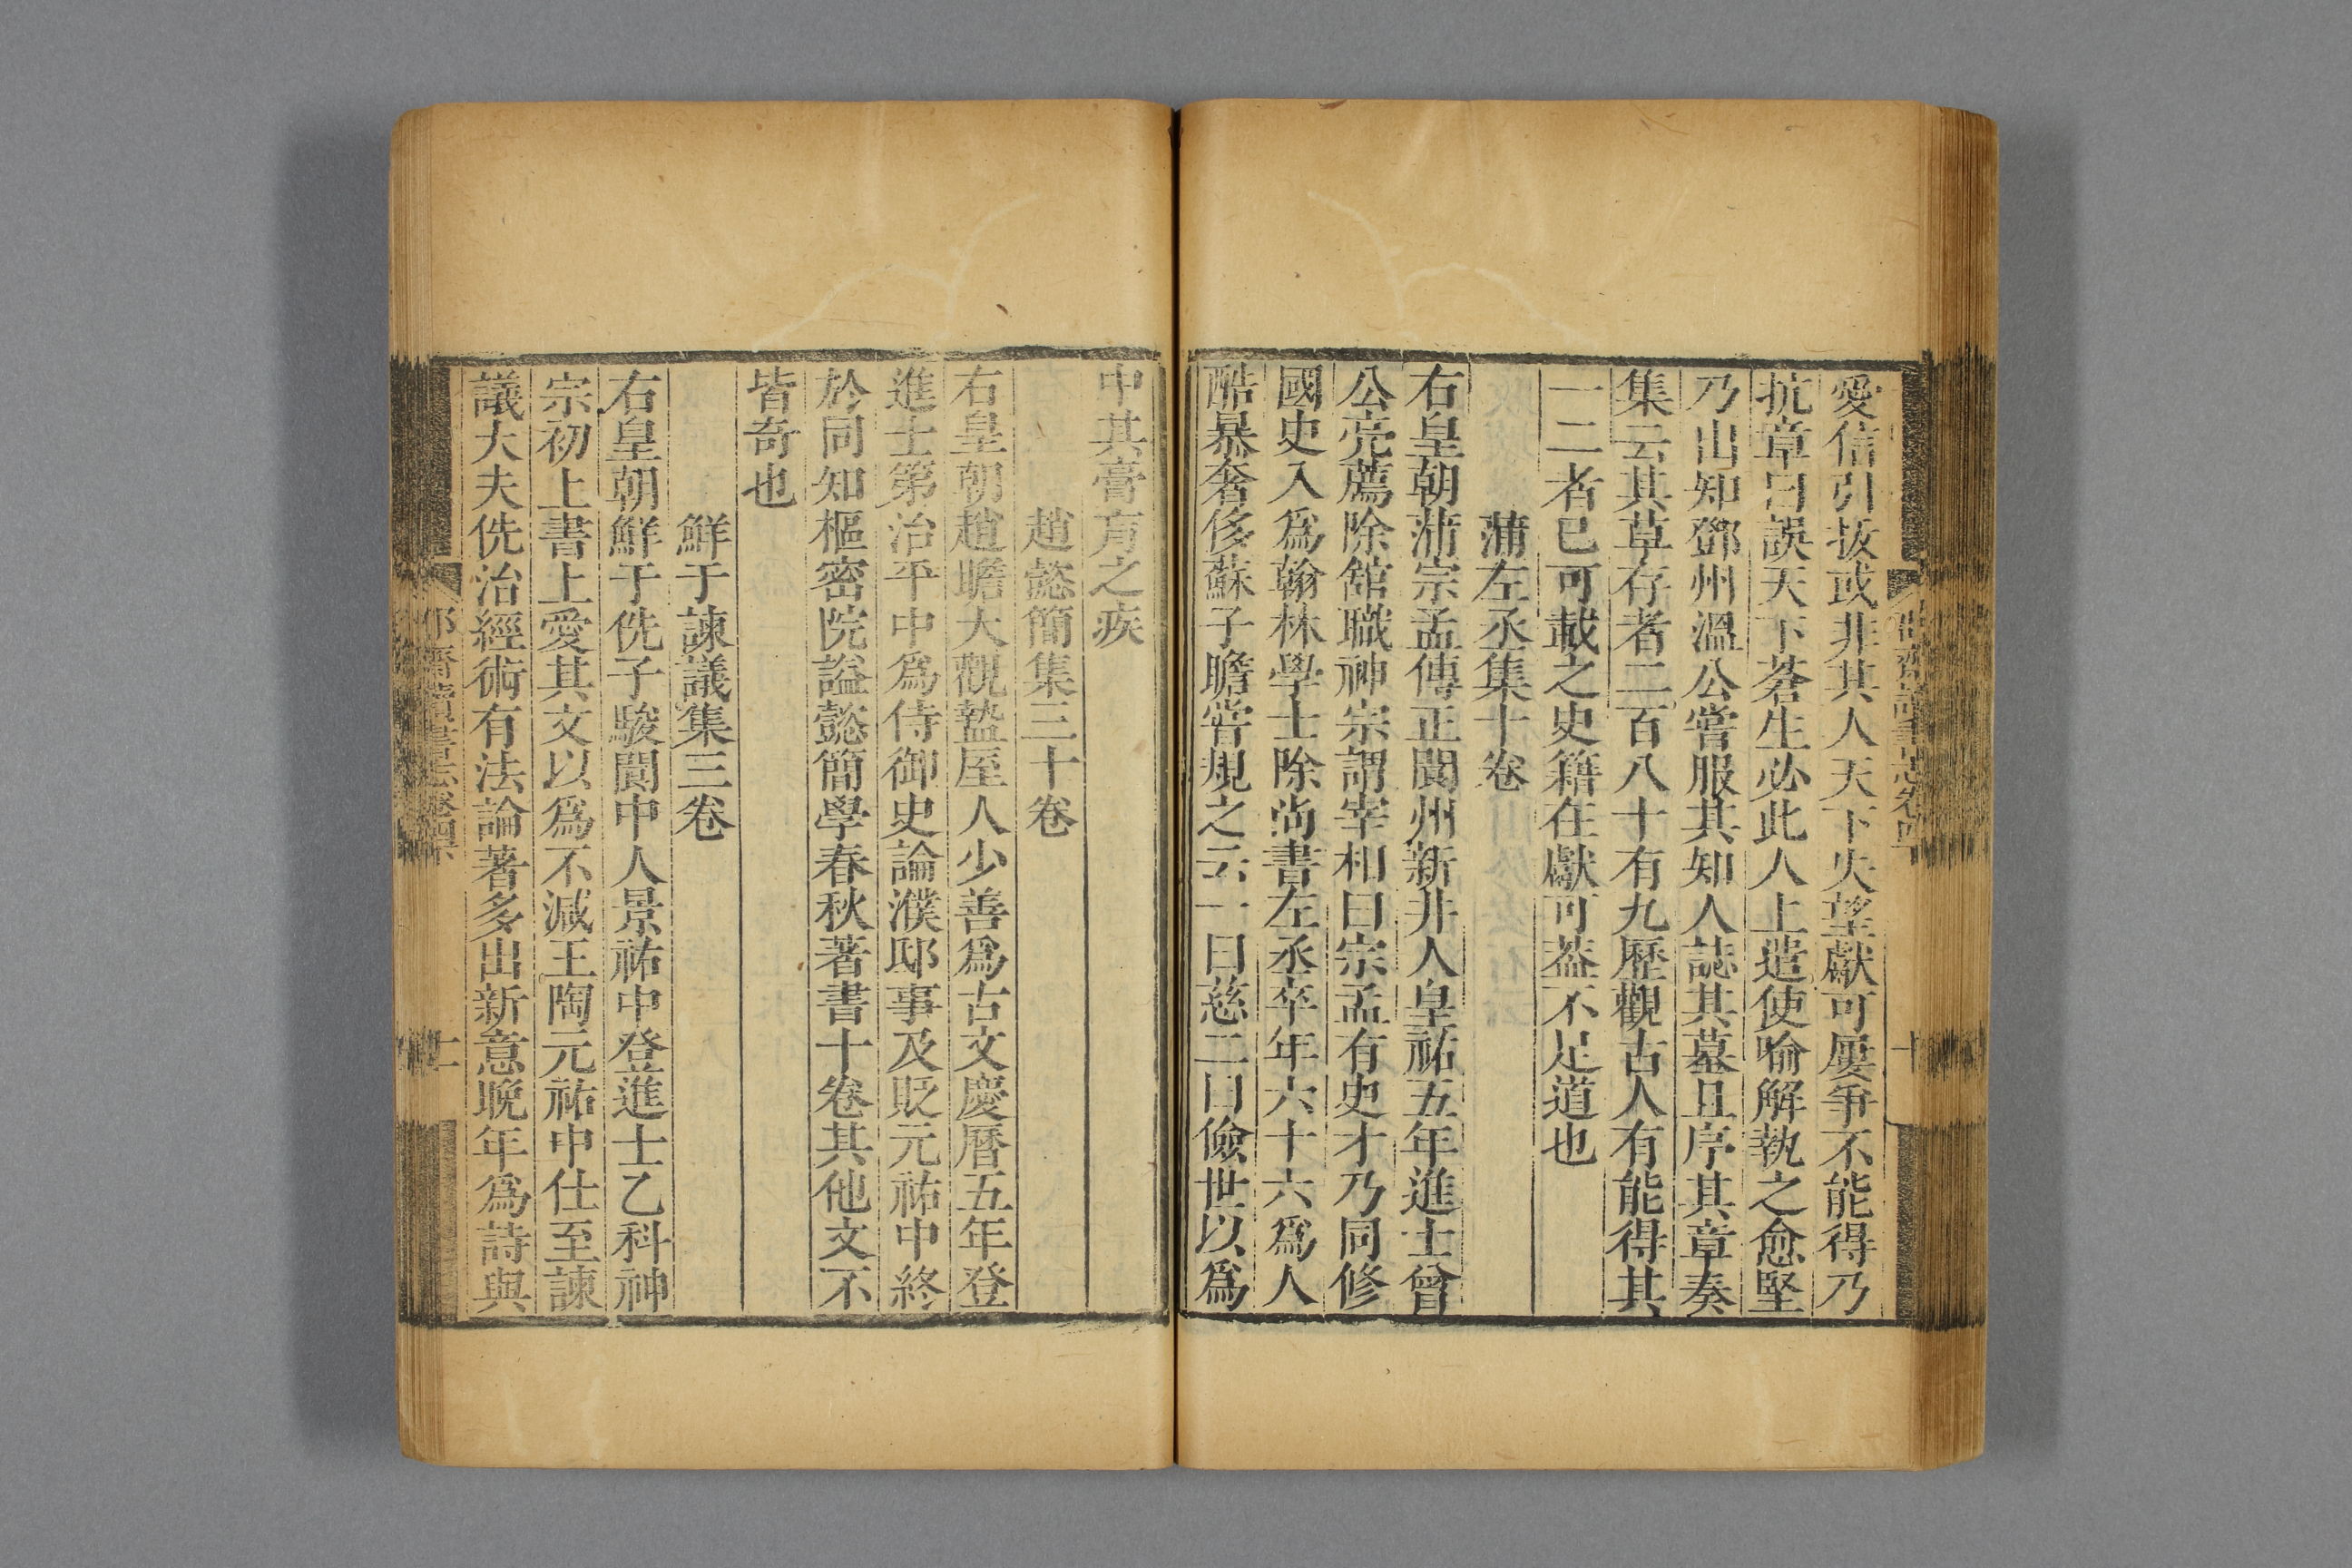 愛信引拔或非其人天下失望獻可屢爭不能得乃
抗章曰誤天下蒼生必此人上遣使喻解執之愈堅
乃出知鄧州溫公嘗服其知人誌其墓且序其章奏
集云其草存者二百八十有九歷觀古人有能得其
一二者已可載之史籍在獻可葢不足道也
蒲左丞集十卷
右皇朝蒲宗孟傳正閬州新井人皇祐五年進士曾
公亮薦除館職神宗謂宰相曰宗孟有史才乃同修
國史入爲翰林學士除尚書左丞卒年六十六爲人
酷暴奢侈蘇子瞻嘗規之云一曰慈二曰儉世以爲
中其膏肓之疾
趙懿簡集三十卷
右皇朝趙瞻大觀盩厔人少善爲古文慶曆五年登
進士第治平中爲侍御史論濮邸事及貶元祐中終
於同知樞密院謚懿簡學春秋著書十卷其他文不
皆奇也
鮮于諫議集三卷
右皇朝鮮于侁子駿閬中人景祐中登進士乙科神
宗初上書上愛其文以爲不減王陶元祐中仕至諫
議大夫侁治經術有法論著多出新意晚年爲詩與